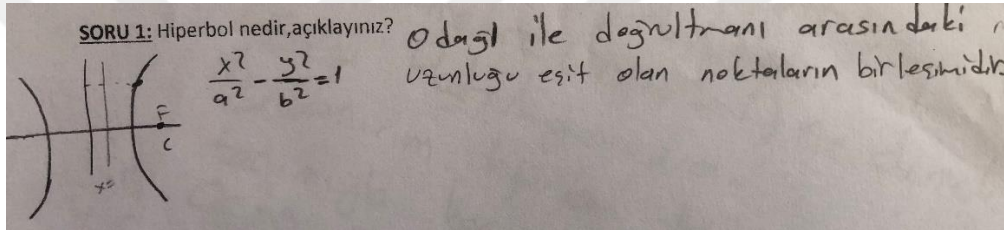 SORU 1: Hiperbol nedir,açıklayınız?
Odağı ile doğrultmanı arasındaki
uzunluğu eşit olan noktaların birleşimidir
x²/a² - y²/b² = 1
F
C
x=